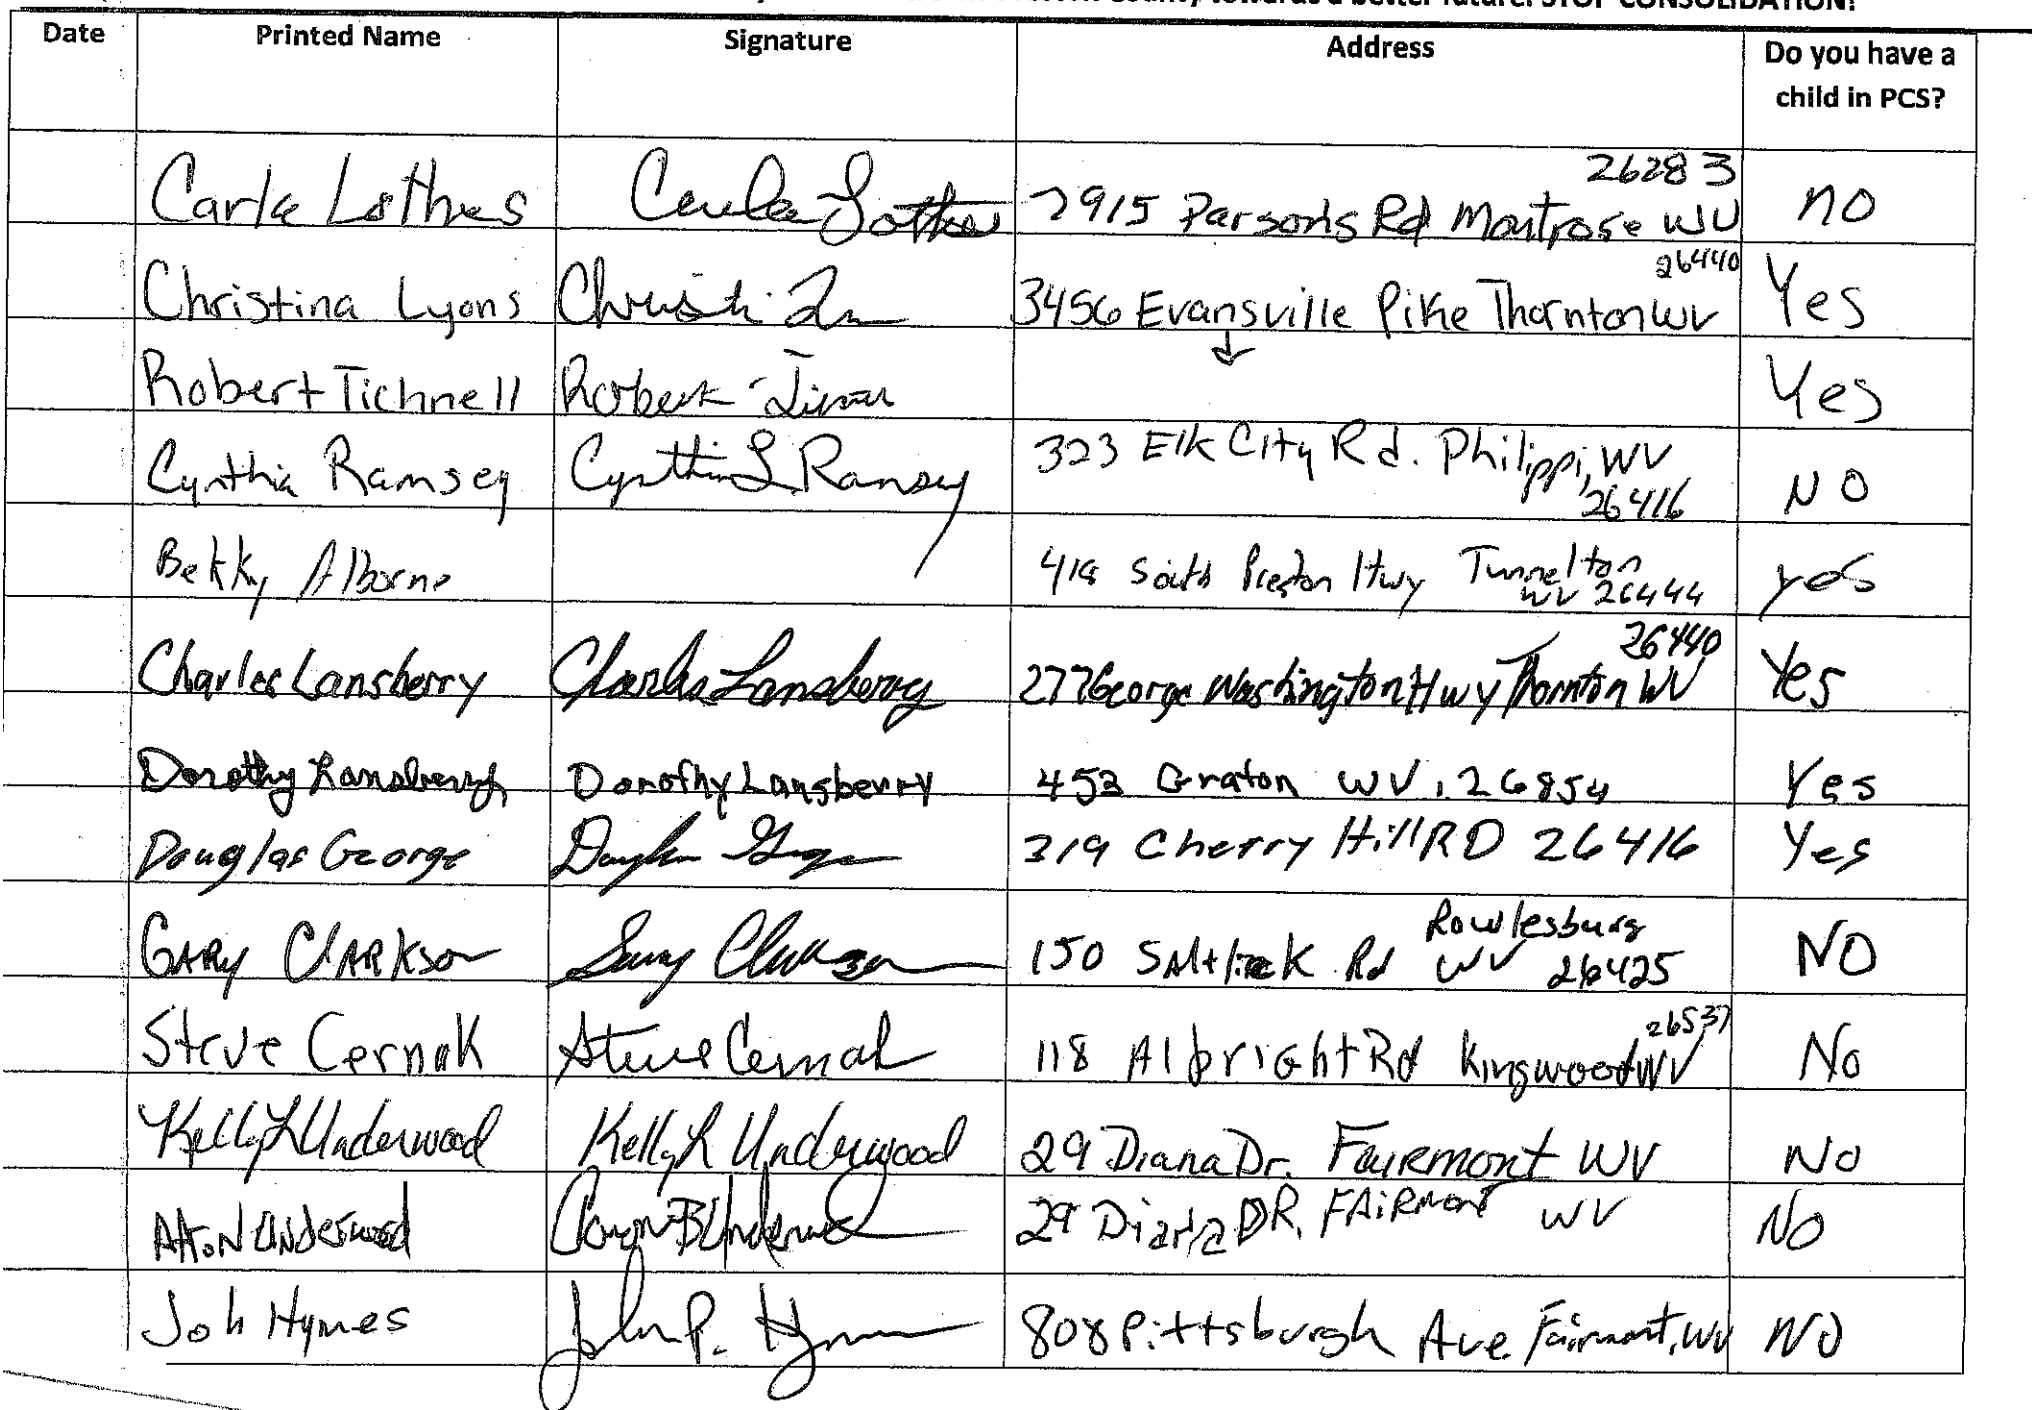 County, towards a better future. STOP CONSOLIDATION!
Date Printed Name Signature Address Do you have a child in PCS?
Carla Lothes Carla Lothes 2915 Parsons Rd Montrose WV 26283 no
Christina Lyons 3456 Evansville Pike Thornton WV 26440 Yes
Robert Tichnell Robert ↓ Yes
Cynthia Ramsey Cynthia L Ramsey 323 Elk City Rd. Philippi, WV 26416 NO
Bekky Alborne 418 South Preston Hwy Tunnelton WV 26444 yes
Charles Lansberry Charles Lansberry 277 George Washington Hwy Thornton WV 26440 Yes
Dorothy Lansberry Dorothy Lansberry 453 Graton WV. 26854 Yes
Douglas George Douglas George 319 Cherry Hill RD 26416 Yes
GARY ClARKson Gary Clarkson 150 SAltlick Rd Rowlesburg WV 26425 NO
Steve Cernak Steve Cernak 118 Albright Rd Kingwood WV 26537 No
Kelly L Underwood Kelly L Underwood 29 Diana Dr. Fairmont WV No
Underwood 29 Diana DR. FAiRmont WV No
Joh Hymes John P. Hymes 808 Pittsburgh Ave Fairmont, WV NO